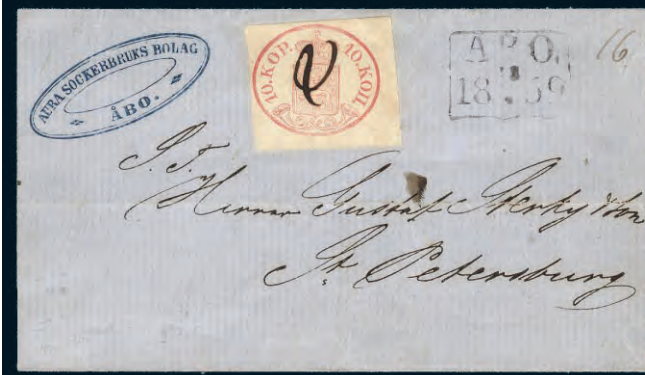 AURA SOCKERBRUKS BOLAG
ÅBO.
10. KOP. 10. КОП.
ÅBO.
18 59
16
S. T.
Herrar Gustaf Sterky & Son
St. Petersburg